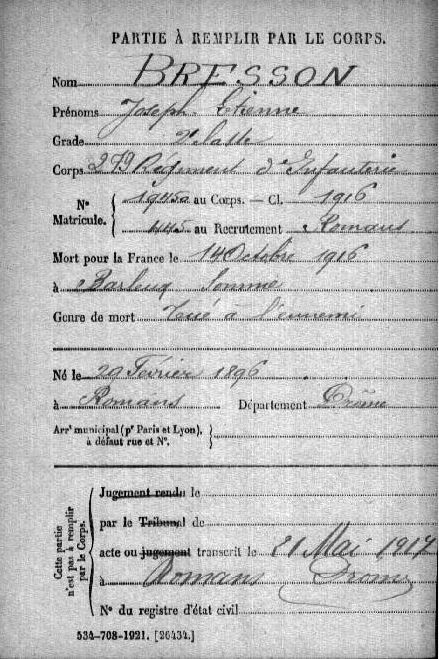 PARTIE À REMPLIR PAR LE CORPS.
Nom BRESSON
Prénoms Joseph Etienne
Grade 2e classe
Corps 279 Régiment d'Infanterie
N° Matricule. { au Corps. — Cl. 1916
445 au Recrutement Romans
Mort pour la France le 14 Octobre 1916
à Barleux Somme
Genre de mort Tué à l'ennemi
Né le 29 Février 1896
à Romans Département Drôme
Arrt municipal (pr Paris et Lyon),
à défaut rue et N°.
Cette partie
n'est pas à remplir
par le Corps.
Jugement rendu le
par le Tribunal de
acte ou jugement transcrit le 21 Mai 1917
à Romans Drome
N° du registre d'état civil
534-708-1921. [26434.]